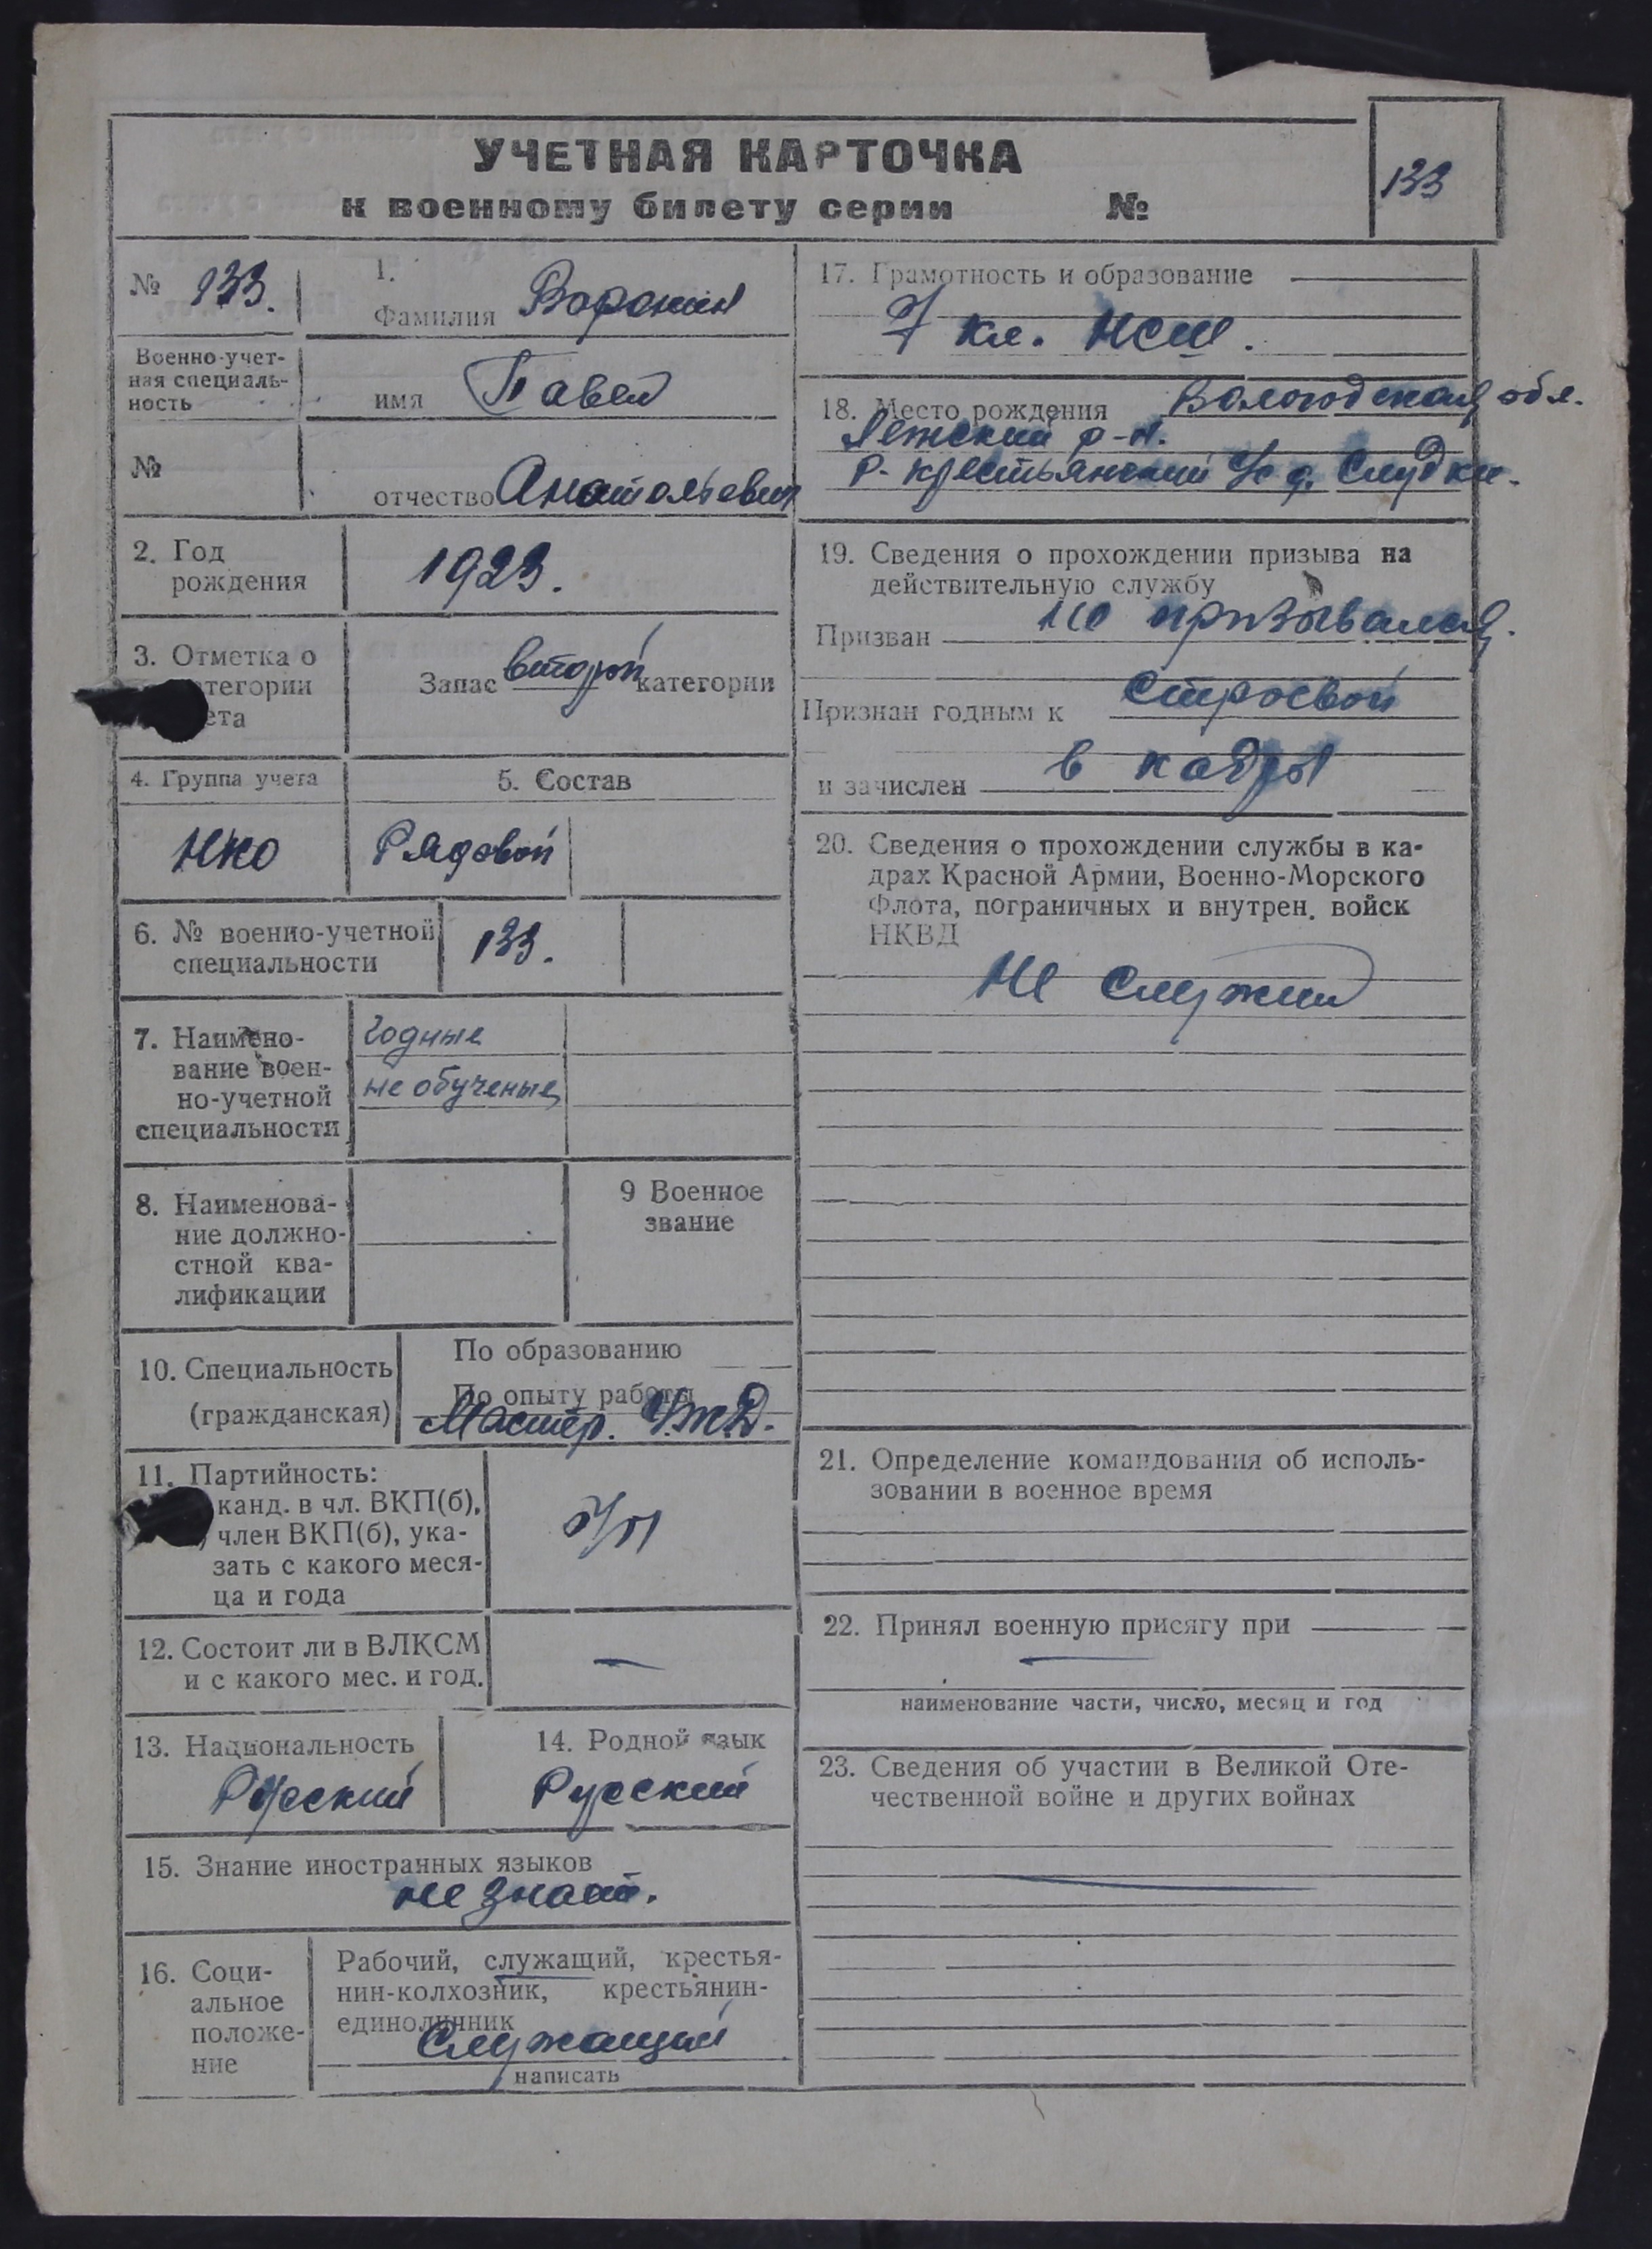 УЧЕТНАЯ КАРТОЧКА
к военному билету серии №
133
№ 133.
1.
Фамилия Воронин
Военно-учет-
ная специаль-
ность
имя Павел
№
отчество Анатольевич
2. Год
рождения
1923.
3. Отметка о
атегории
ета
Запас второй категории
4. Группа учета
НКО
5. Состав
Рядовой
6. № военно-учетной
специальности
133.
7. Наимено-
вание воен-
но-учетной
специальности
Годные
не обученые
8. Наименова-
ние должно-
стной ква-
лификации
9 Военное
звание
10. Специальность
(гражданская)
По образованию
По опыту работы
Мастер.
11. Партийность:
канд. в чл. ВКП(б),
член ВКП(б), ука-
зать с какого меся-
ца и года
б/п
12. Состоит ли в ВЛКСМ
и с какого мес. и год.
—
13. Национальность
Русский
14. Родной язык
Русский
15. Знание иностранных языков
не знает.
16. Соци-
альное
положе-
ние
Рабочий, служащий, крестья-
нин-колхозник, крестьянин-
единоличник
Служащий
написать
17. Грамотность и образование
7 кл. НСШ.
18. Место рождения Вологодская обл.
р-н.
Р-Крестьянский с/с д. Слудки.
19. Сведения о прохождении призыва на
действительную службу
Призван не призывался.
Признан годным к строевой
и зачислен в кадры
20. Сведения о прохождении службы в ка-
драх Красной Армии, Военно-Морского
Флота, пограничных и внутрен. войск
НКВД
Не служил
21. Определение командования об исполь-
зовании в военное время
22. Принял военную присягу при
—
наименование части, число, месяц и год
23. Сведения об участии в Великой Оте-
чественной войне и других войнах
—